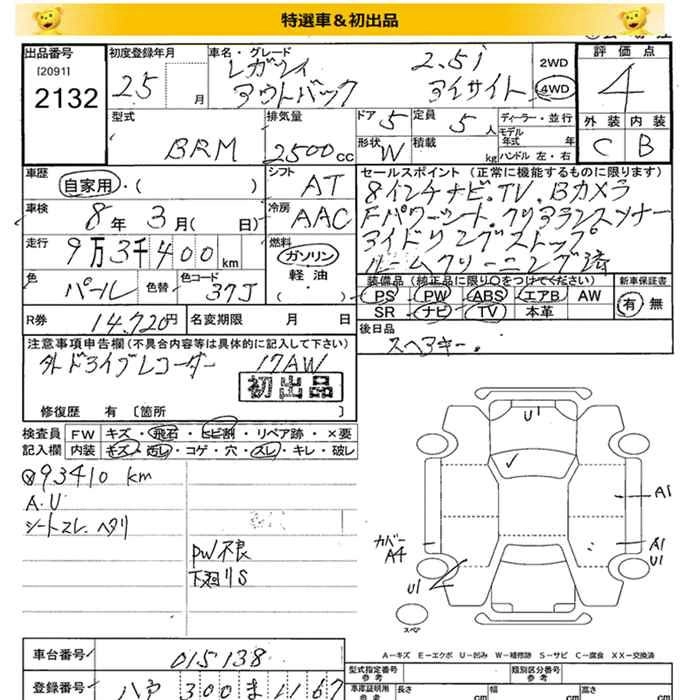 特選車＆初出品
出品番号
[2091]
2132
初度登録年月
25 月
車名・グレード
レガシィ 2.5i
アウトバック アイサイト
2WD
4WD
評価点
4
外装 内装
C B
型式
BRM
排気量
2500cc
ドア 5
定員 5人
ディーラー・並行
モデル年式 年
形状 W
積載 kg
ハンドル 左・右
車歴
自家用・( )
シフト
AT
セールスポイント (正常に機能するものに限ります)
8インチナビ.TV.Bカメラ
Fパワーシート.クリアランスソナー
アイドリングストップ
ルームクリーニング済
車検
8年 3月( 日)
冷房
AAC
走行
9万3千400km
燃料
ガソリン
軽油
( ・ )
色
パール
色替
色コード
37J
装備品 (純正品に限り○をつけてください)
PS PW ABS エアB AW
SR ナビ TV 本革
新車保証書
有 無
R券 14,720円
名変期限 月 日
後日品
スペアキー.
注意事項申告欄(不具合内容等は具体的に記入して下さい)
外ドライブレコーダー 17AW
初出品
修復歴 有 〔箇所 〕
検査員記入欄
FW キズ・飛石・ヒビ割・リペア跡・×要
内装 キズ・汚レ・コゲ・穴・スレ・キレ・破レ
93410 km
A.U
シートスレ.ヘタリ
PW不良
下廻りS
U1
A1
カバー
A4
A1
U1
U1
スペア
A－キズ E－エクボ U－凹み W－補修跡 S－サビ C－腐食 XX－交換済
車台番号 015138
登録番号 300 ま 1167
型式指定番号 参考
類別区分番号 参考
車庫証明用 参考
長さ cm
幅 cm
高さ cm